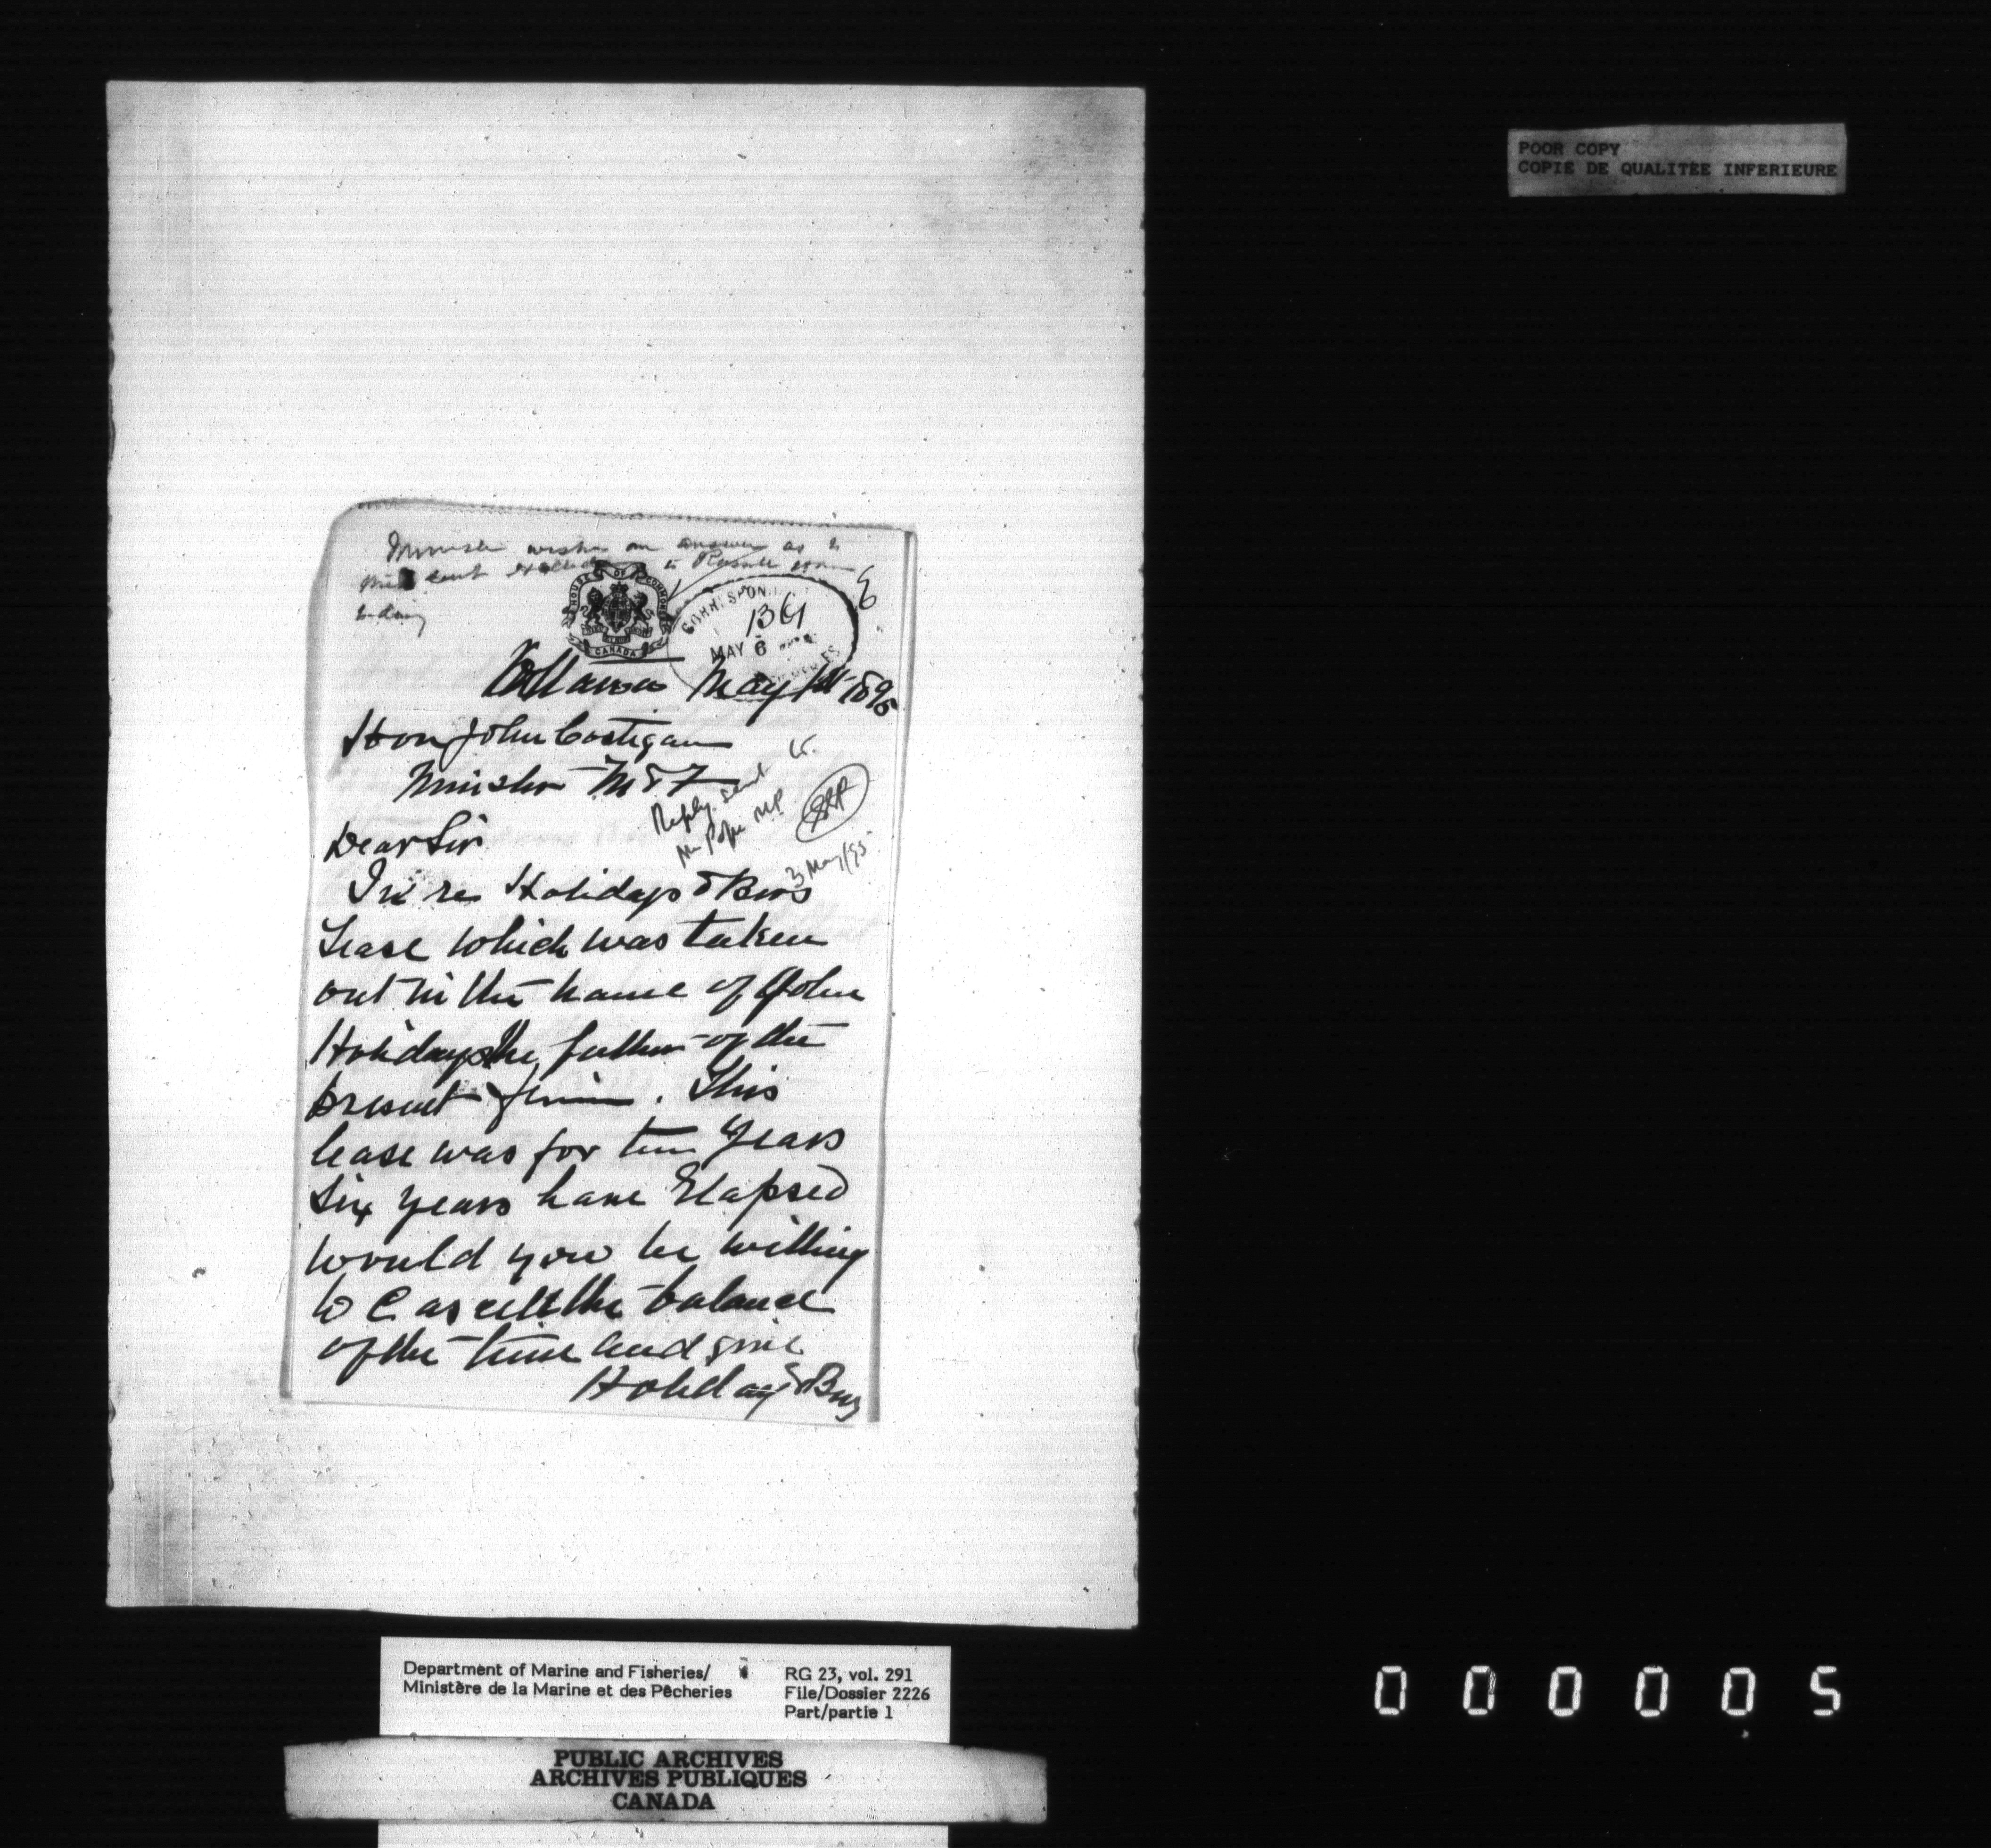 POOR COPY
COPIE DE QUALITEE INFERIEURE
wishes an answer as to
sent to
to-day
HOUSE OF COMMONS
CANADA
CORRESPON
1361
MAY 6
Ottawa May 1st 1895
Hon John Costigan
Minister M & F
Reply sent
Mr Pope MP
3 May/95
Dear Sir
In re Holiday & Bros
Lease which was taken
out in the name of John
Holiday the father of the
present firm. This
lease was for ten years
Six years have Elapsed
would you be willing
to Cascell the balance
of the time and give
Holiday & Bros
Department of Marine and Fisheries/
Ministère de la Marine et des Pêcheries
RG 23, vol. 291
File/Dossier 2226
Part/partie 1
PUBLIC ARCHIVES
ARCHIVES PUBLIQUES
CANADA
000005